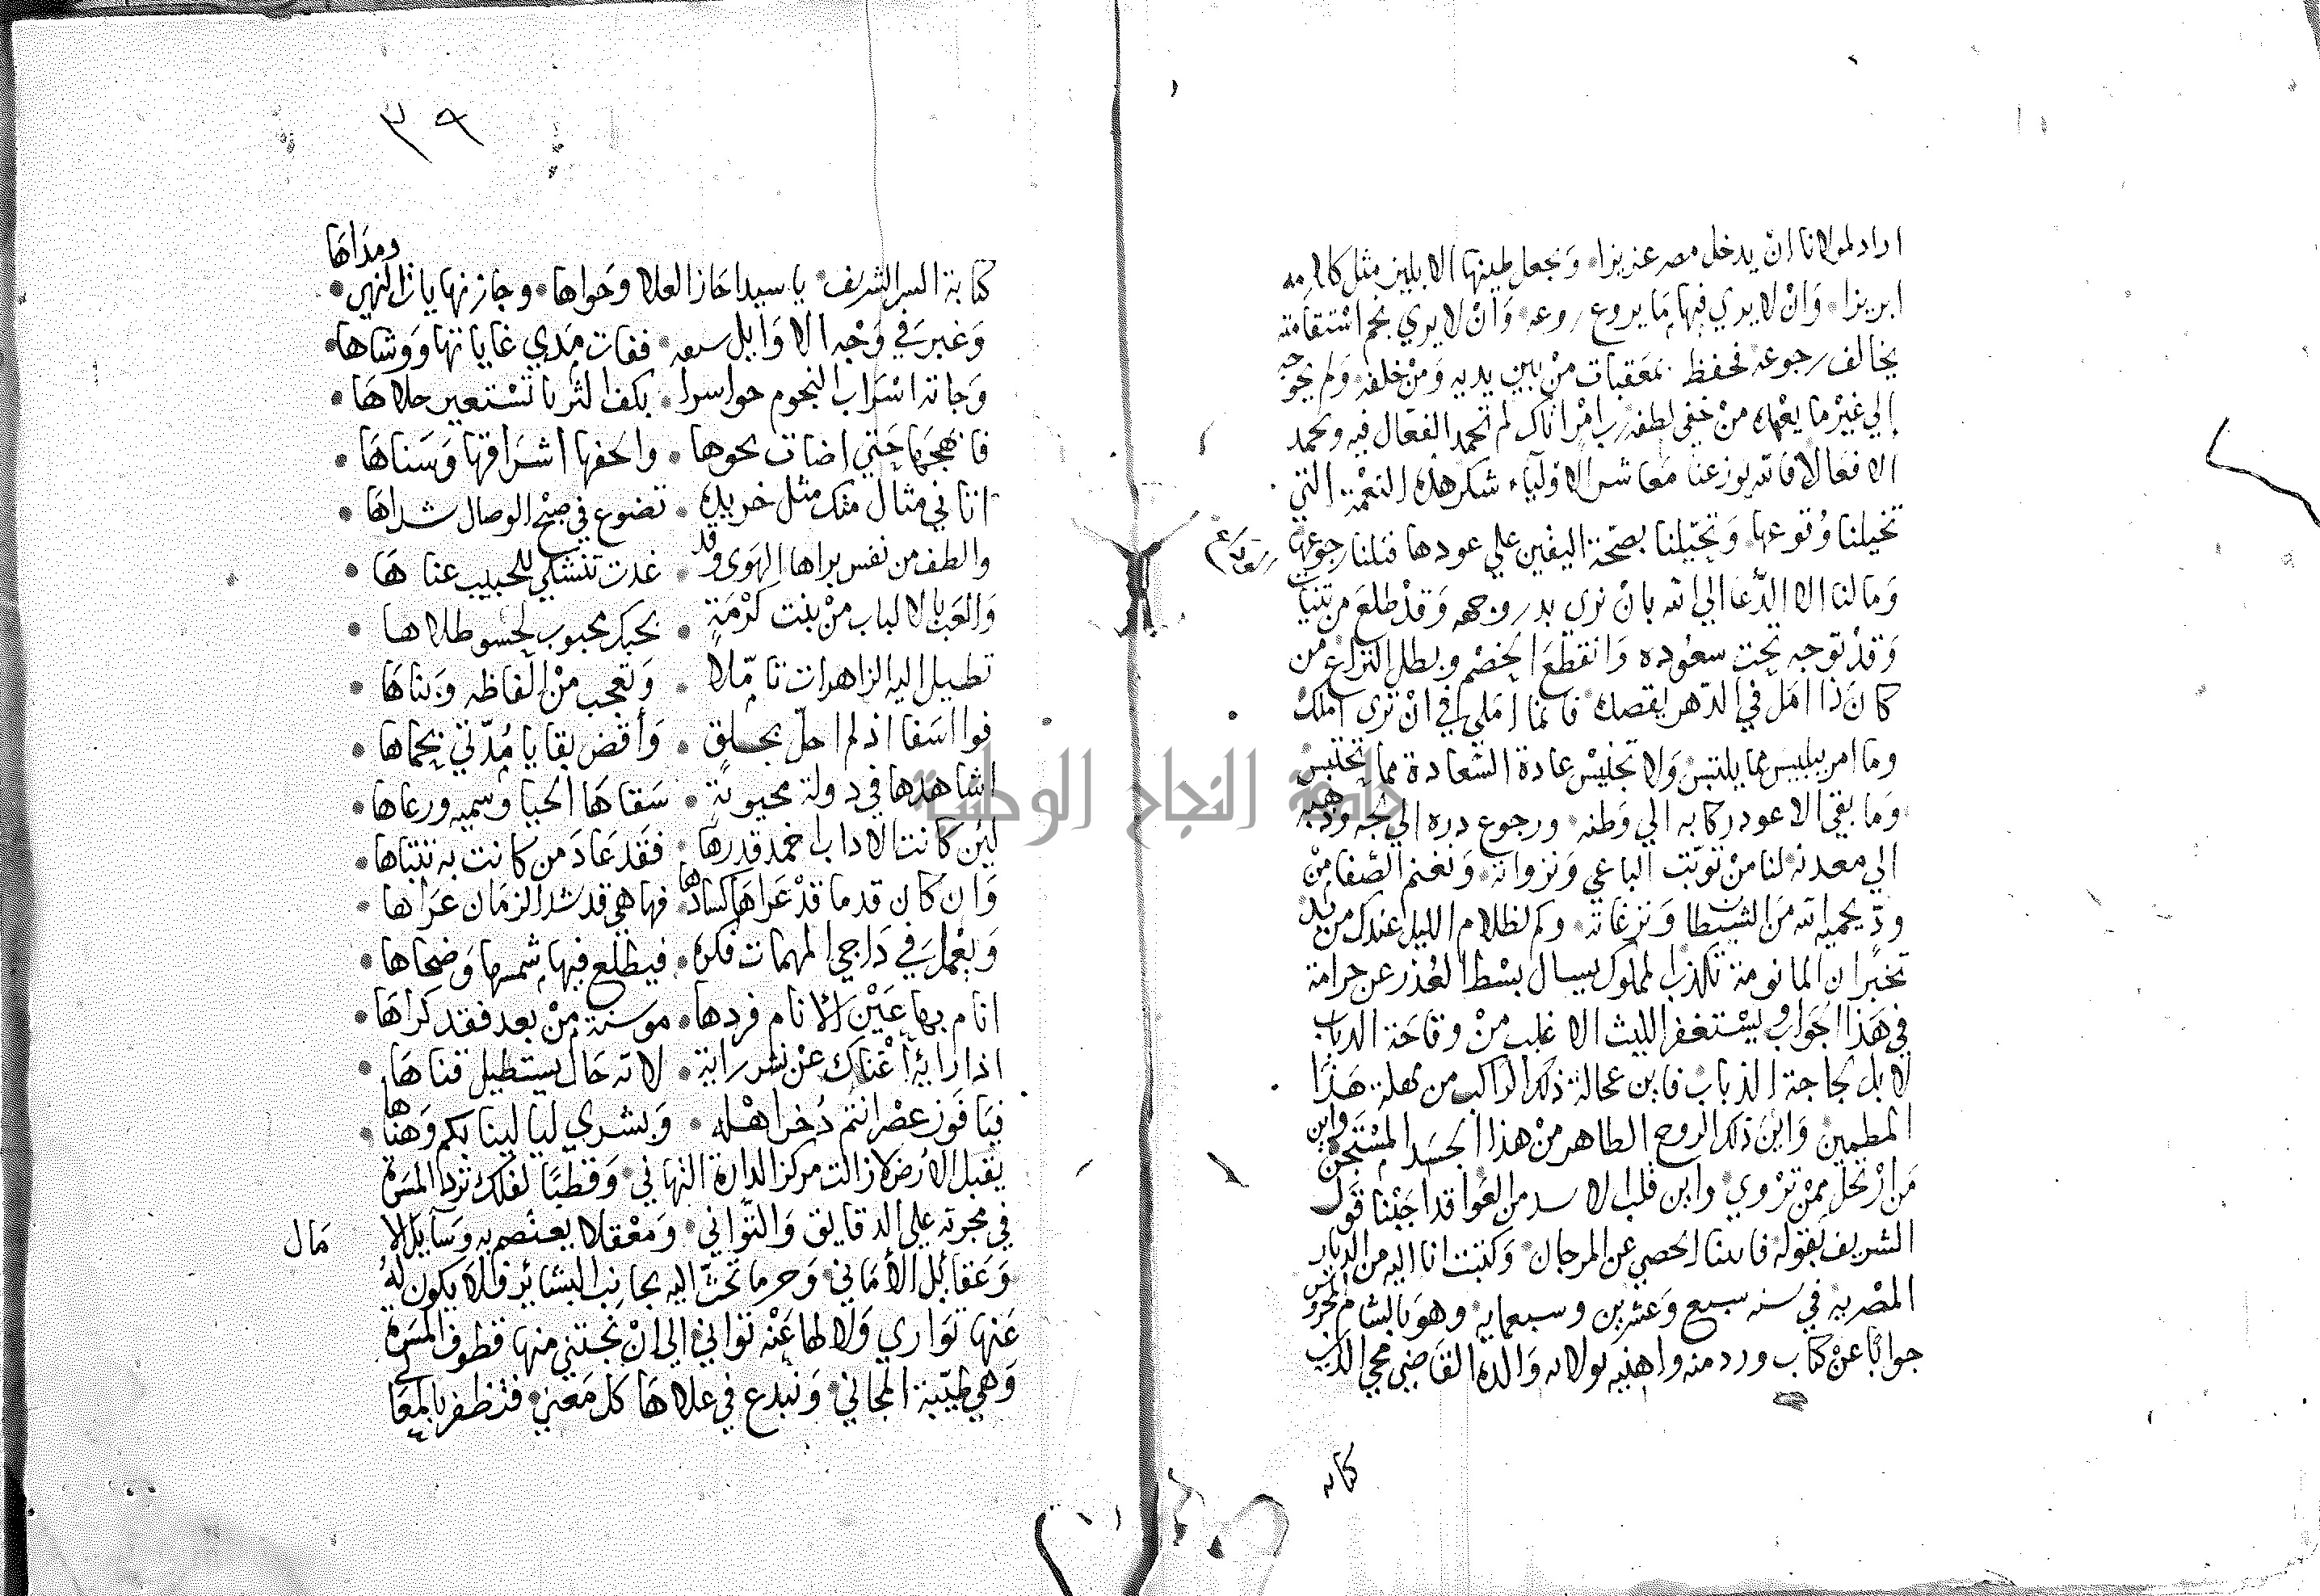 اراد لمولانا ان يدخل مصر عزيزا وتجعل طينها الابليز مثل كلامه
ابريزا وان لا يري فيها ما يروع روعه وان لا يري نجم استقامته
يخالف رجوعه فحفظ بمعقبات من بين يديه ومن خلفه ولم يحوجه
إلي غير ما يعهده من خفي لطفه رب امر اتاك لم تحمد الفعال فيه وتحمد
الافعالا فالله يوزعنا معاشر الاولياء شكر هذه النعمة التي
تخيلنا وقوعها وتحيلنا بصحة اليقين علي عودها فنلنا رجوعها
وما لنا الا الدعا الي الله بان نري بدر وجهه وقد طلع من ثنيات
وقد توجه تحت سعوده وانقطع الخصم وبطل النزاع من
كان ذا امل في الدهر يقصك فانما املي في ان تري املك
وما امر بلبيس مما يلتبس ولا تخليس عادة السعادة مما تختلس
وما بقي الا عود ركابه الي وطنه ورجوع دره الي لجه وذهبه
الي معدنه لنا من توثب الباغي ونزواته ونغنم الصفا من
ود يحميه الله من الشيطان ونزغاته وكم لظلام الليل عندك من يد
تخبر ان المانوية تكذب المملوك يسال بسط العذر عن جرامة
في هذا الجواب ويستغفر الليث الاغلب من وقاحة الذباب
لا بل لجاجة الذباب فاين عجالة ذلك الراكب من مهلة هذا
المطمين واين ذلك الروح الطاهر من هذا الجسد المستجن واين
من ارتجل ممن تروي واين قلب الاسد من العوا قد اجبنا قول
الشريف بقوله فاتنا الحصي عن المرجان وكتبت انا اليه من الديار
المصريه في سنه سبع وعشرين وسبعمايه وهو بالشام المحروس
جوابا عن كتاب ورد منه واهنيه بولايه والده القاضي محي الدين
كتابه
٣٩
ومداها
كتابة السر الشريف يا سيدا حاز العلا وحواها وجاز نهايات النهي
وغبر في وجه الاوايل سعيه ففات مدي غاياتها ووشاها
وجاته اسراب النجوم حواسرا بكف الثريا تستعير حلاها
فانهجها حتي اضات نحوها والحفها اشراقها وسناها
اتاني مثال منك مثل خريدة تضوع في صبح الوصال شذاها
والطف من نفس براها الهوي وقد غدت تتشكي للحبيب عناها
والعب بالالباب من بنت كرمة بحبك محبوب لحسو طلاها
تطيل اليه الزاهرات تامّلا وتعجب من الفاظه وبناها
فوا اسفا اذ لم احل بجلق واقض بقايا مدتي بحماها
اشاهدها في دولة محيوية سقاها الحيا وسميه ورعاها
لين كانت الاداب اخمد قدرها فقد عاد من كانت به تتباها
وان كان قدما قد عراها كسادها فها هي قد شد الزمان عراها
ويعمل في داجي المهمات فكره فيطلع فيها شمسها وضحاها
انام بها عين الانام فردها موسنة من بعد فقد كراها
اذا رايه اغناك عن نشر راية لاية حال يستطيل قناها
فيا فوز عصر انتم ذخر اهله وبشري ليالينا بكم وهناها
يقبل الارض لا زالت مركزا لدارة التهاني وقطبا لفلك ترد المسرة
في مجرته علي الدقايق والثواني ومعقلا يعتصم به وسايل الا مال
وعقائل الاماني وحرما تحث اليه نجائب البشائر فلا يكون له
عنها تواري ولا لها عنه تواني الي ان تجتني منها قطوف المسرة
وهي طيبة المجاني وتبدع في علاها كل معني فتظفر بالمعا